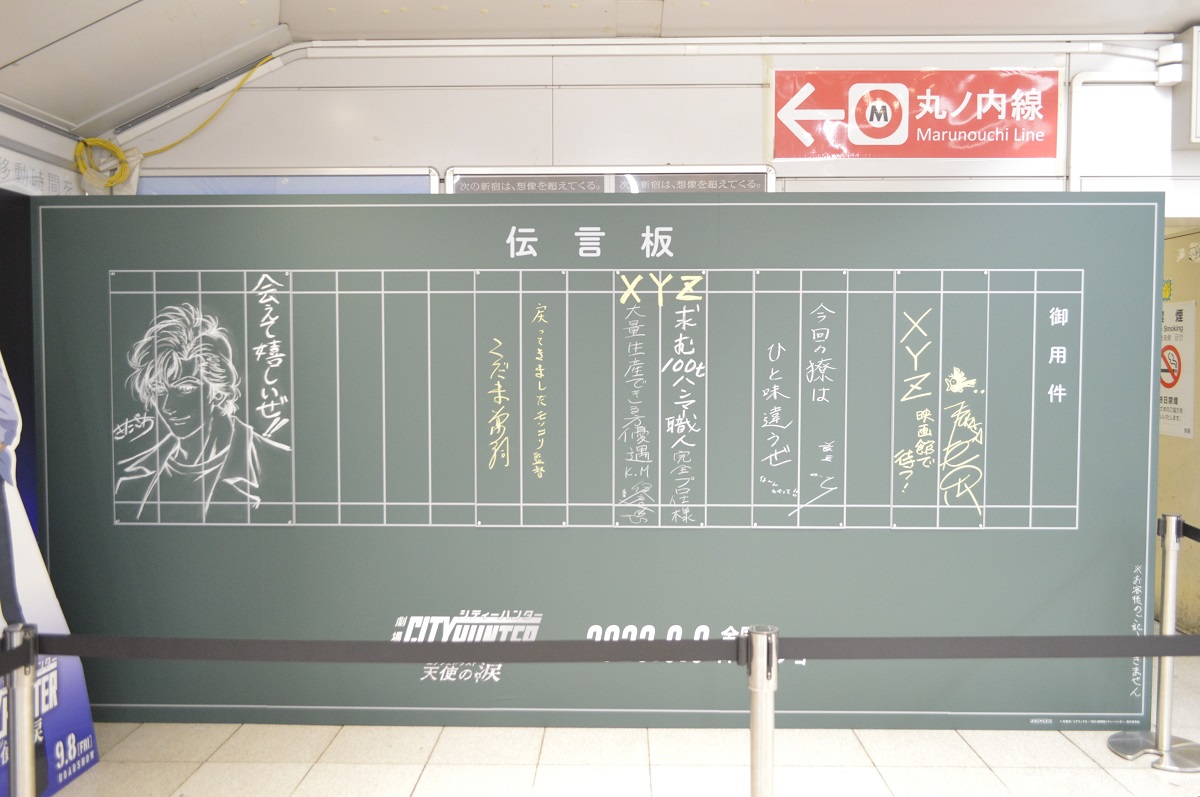 丸ノ内線
Marunouchi Line
移動時間
次の新宿は、想像を超えてくる。
次の新宿は、想像を超えてくる。
伝言板
御用件
XYZ
映画館で
待つ!
今回の撩は
ひと味違うぜ
XYZ
求む100tハンマー職人完全プロ仕様
大量生産できる方優遇K.M
戻ってきましたモッコリ監督
こだま兼嗣
会えて嬉しいぜ!!
シティーハンター
劇場
CITY HUNTER
天使の涙
※お客様のご記
きません
9.8 [FRI]
ROADSHOW
Smoking